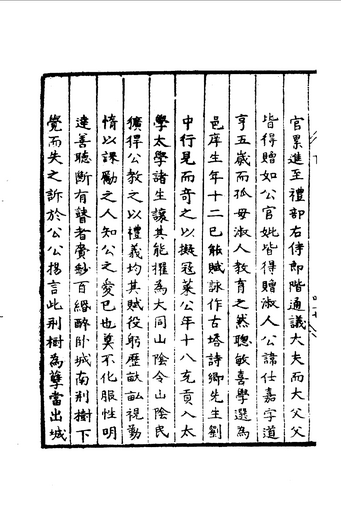 官累進至禮部右侍郎階通議大夫而大父父
皆得贈如公官妣皆得贈淑人公諱仕嘉字道
亨五歲而孤毋淑人教育之然聰敏喜學選為
邑庠生年十二已能賦詠作古塔詩鄉先生劉
中行見而奇之以擬冠萊公年十八充貢入太
學太學諸生讓其能擢為大同山陰令山陰民
獷得公教之以禮義均其賦役躬歷畝畆視勤
惰以課勵之人知公之愛已也莫不化服性明
達善聽斷有瞽者賣紗百緡醉卧城南荆樹下
覺而失之訴於公公揚言此荆樹為孽當出城